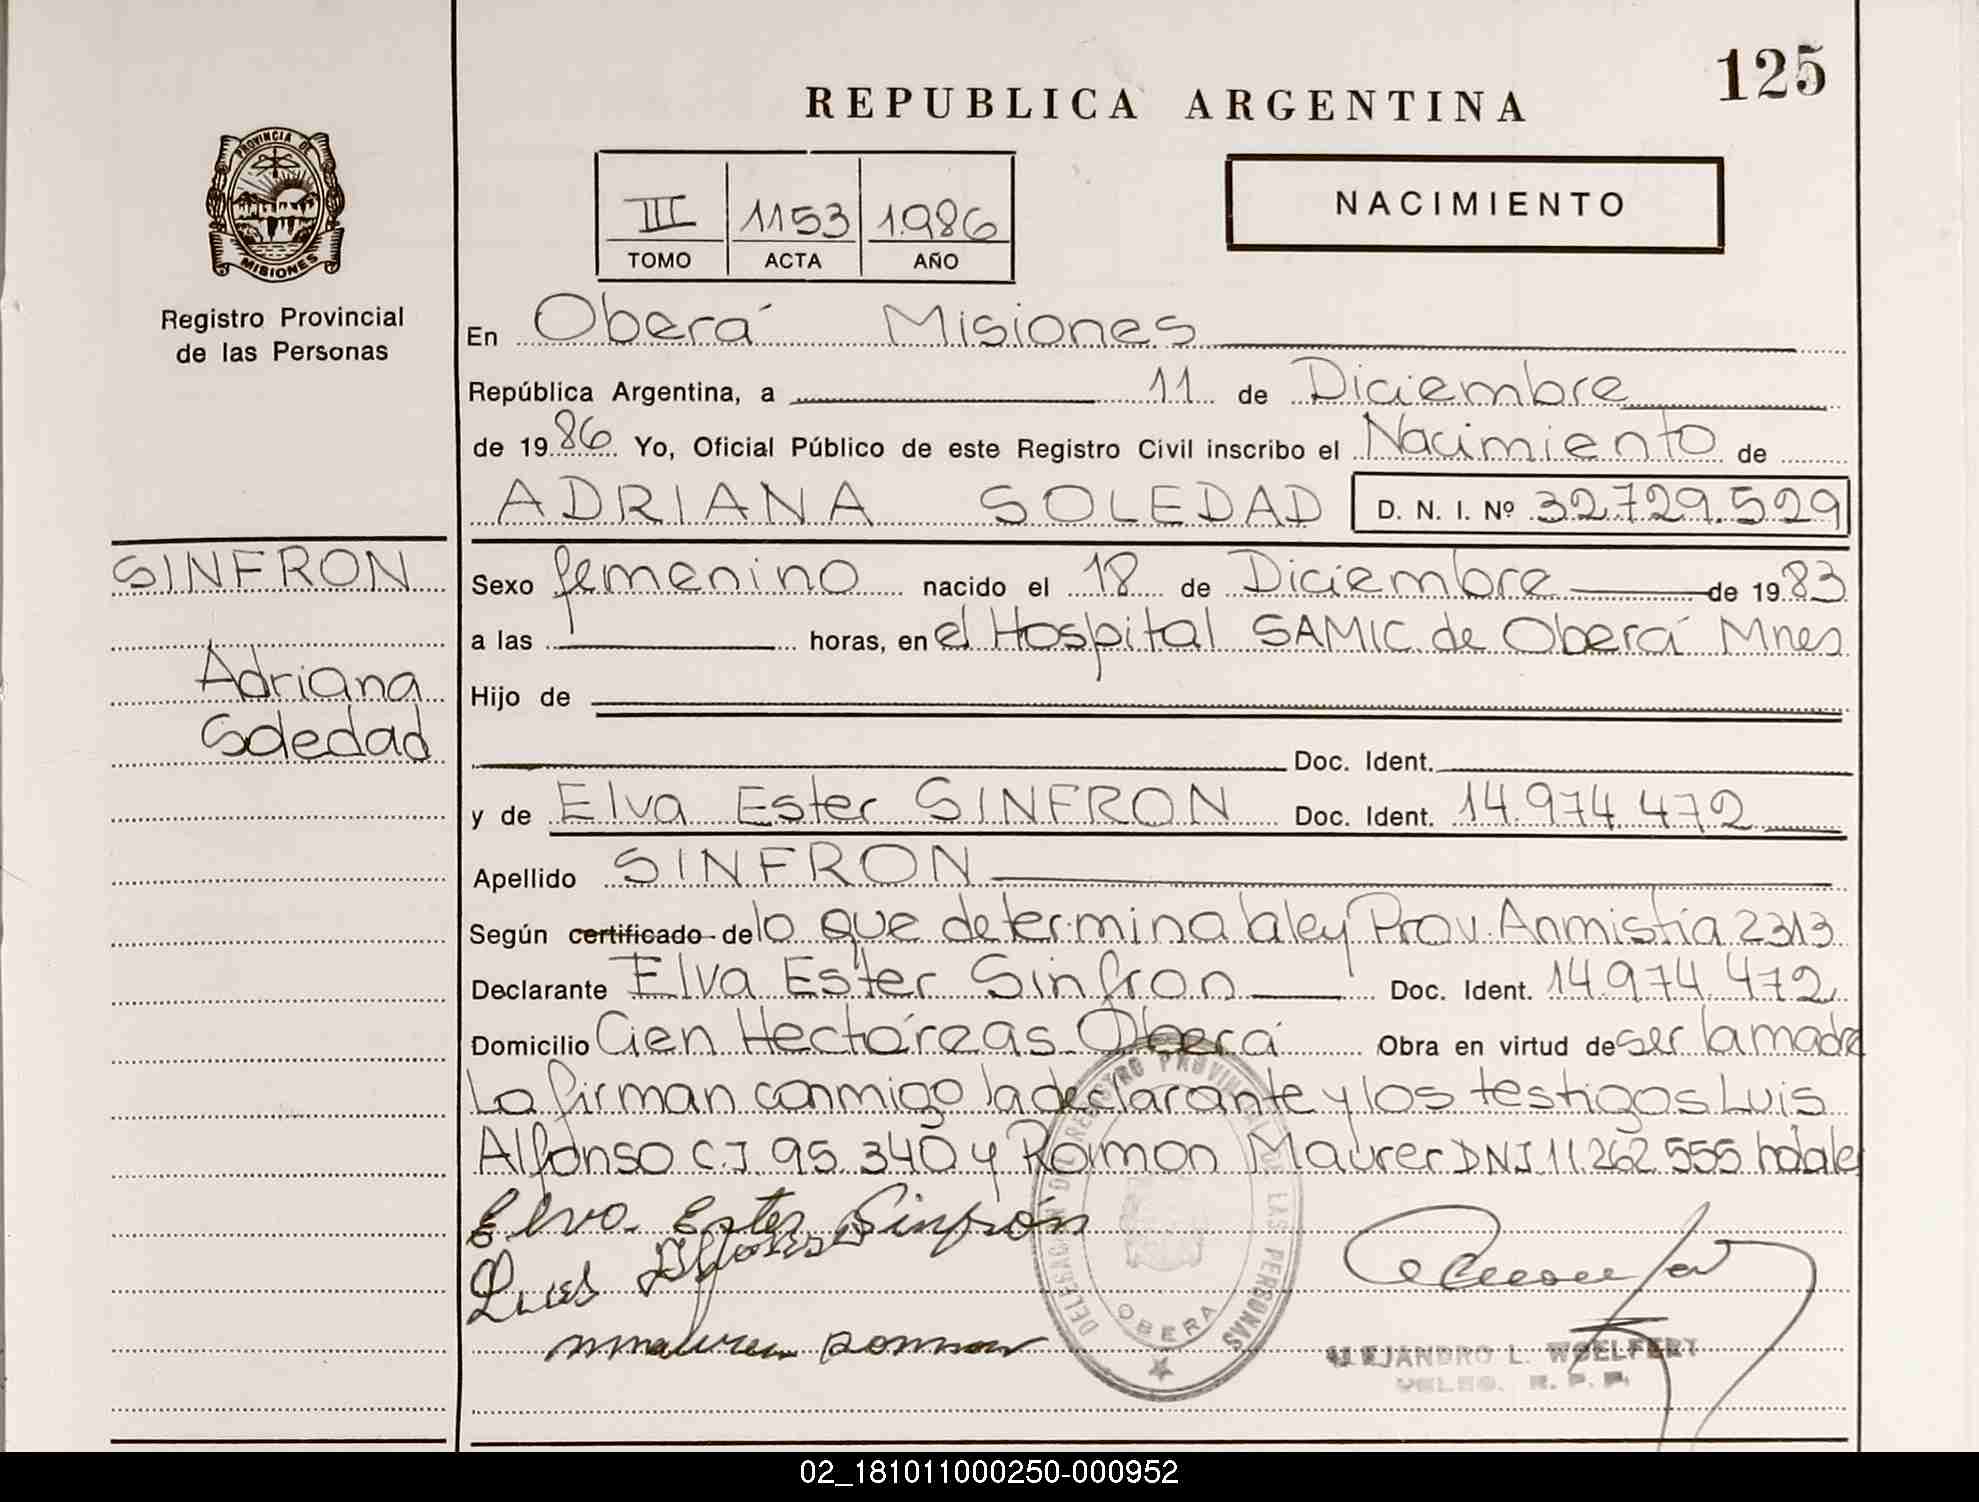 125
REPUBLICA ARGENTINA
PROVINCIA DE
MISIONES
Registro Provincial
de las Personas
III 1153 1986
TOMO ACTA AÑO
NACIMIENTO
En Oberá Misiones
República Argentina, a 11 de Diciembre
de 1986 Yo, Oficial Público de este Registro Civil inscribo el Nacimiento de
ADRIANA SOLEDAD D. N. I. Nº 32.729.529
SINFRON
Adriana
Soledad
Sexo femenino nacido el 18 de Diciembre de 1983
a las horas, en el Hospital SAMIC de Oberá Mnes
Hijo de
Doc. Ident.
y de Elva Ester SINFRON Doc. Ident. 14.974.472
Apellido SINFRON
Según certificado de lo que determina la ley Prov. Anmistía 2313
Declarante Elva Ester Sinfron Doc. Ident. 14.974.472
Domicilio Cien Hectáreas Oberá Obra en virtud de ser la madre
La firman conmigo la declarante y los testigos Luis
Alfonso C.I 95.340 y Ramon Maurer DNI 11.262.555 
Elva Ester Sinfrón
Luis Alfonso
Maurer Ramon
DELEGACION DEL REGISTRO PROVINCIAL DE LAS PERSONAS
OBERA
ALEJANDRO L. WOELFERT
R. P. P.
02_181011000250-000952